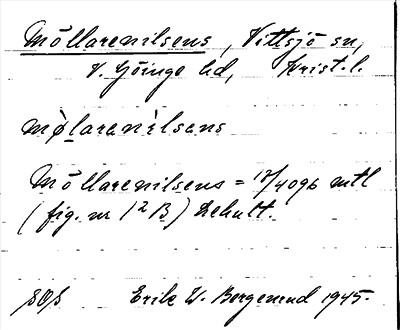 Möllarenilsens, Vittsjö sn,
V. Göinge hd, Krist. l.
mø̀larenìlsens
Möllarenilsens = 17/4096 mtl
(fig. nr 1²B) Lehult.
SOS Erik W. Bergmund 1945.